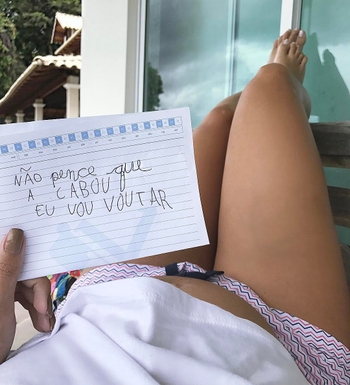 NÃO pence que
A CABOU
EU VOU VOUTAR